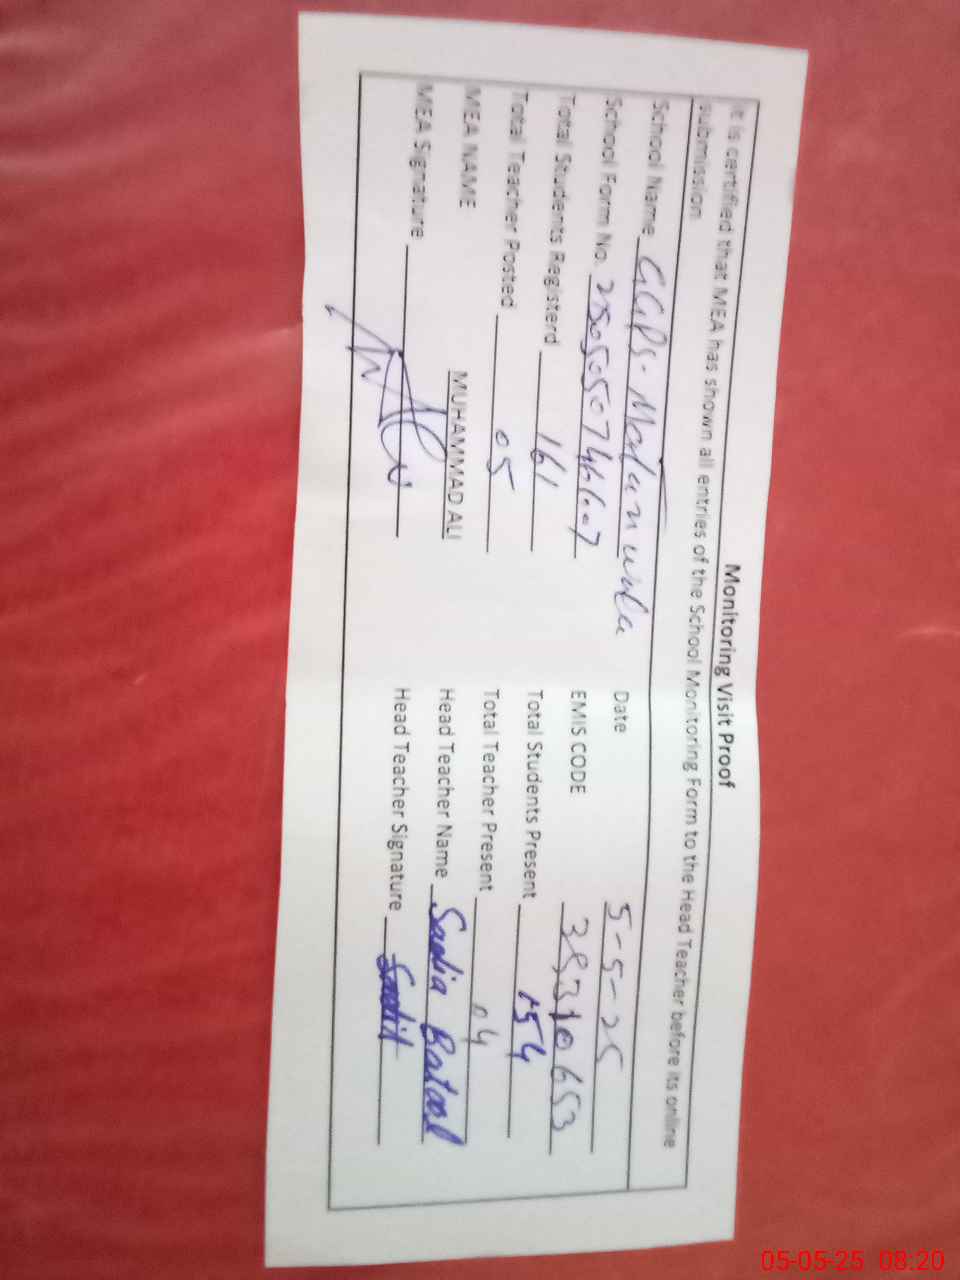 Monitoring Visit Proof
It is certified that MEA has shown all entries of the School Monitoring Form to the Head Teacher before its online
submission
School Name GGPS. Date 5-5-25
School Form No. EMIS CODE
Total Students Registerd 161 Total Students Present 154
Total Teacher Posted 05 Total Teacher Present 04
MEA NAME MUHAMMAD ALI Head Teacher Name Sadia Batool
MEA Signature Head Teacher Signature
05-05-25 08:20